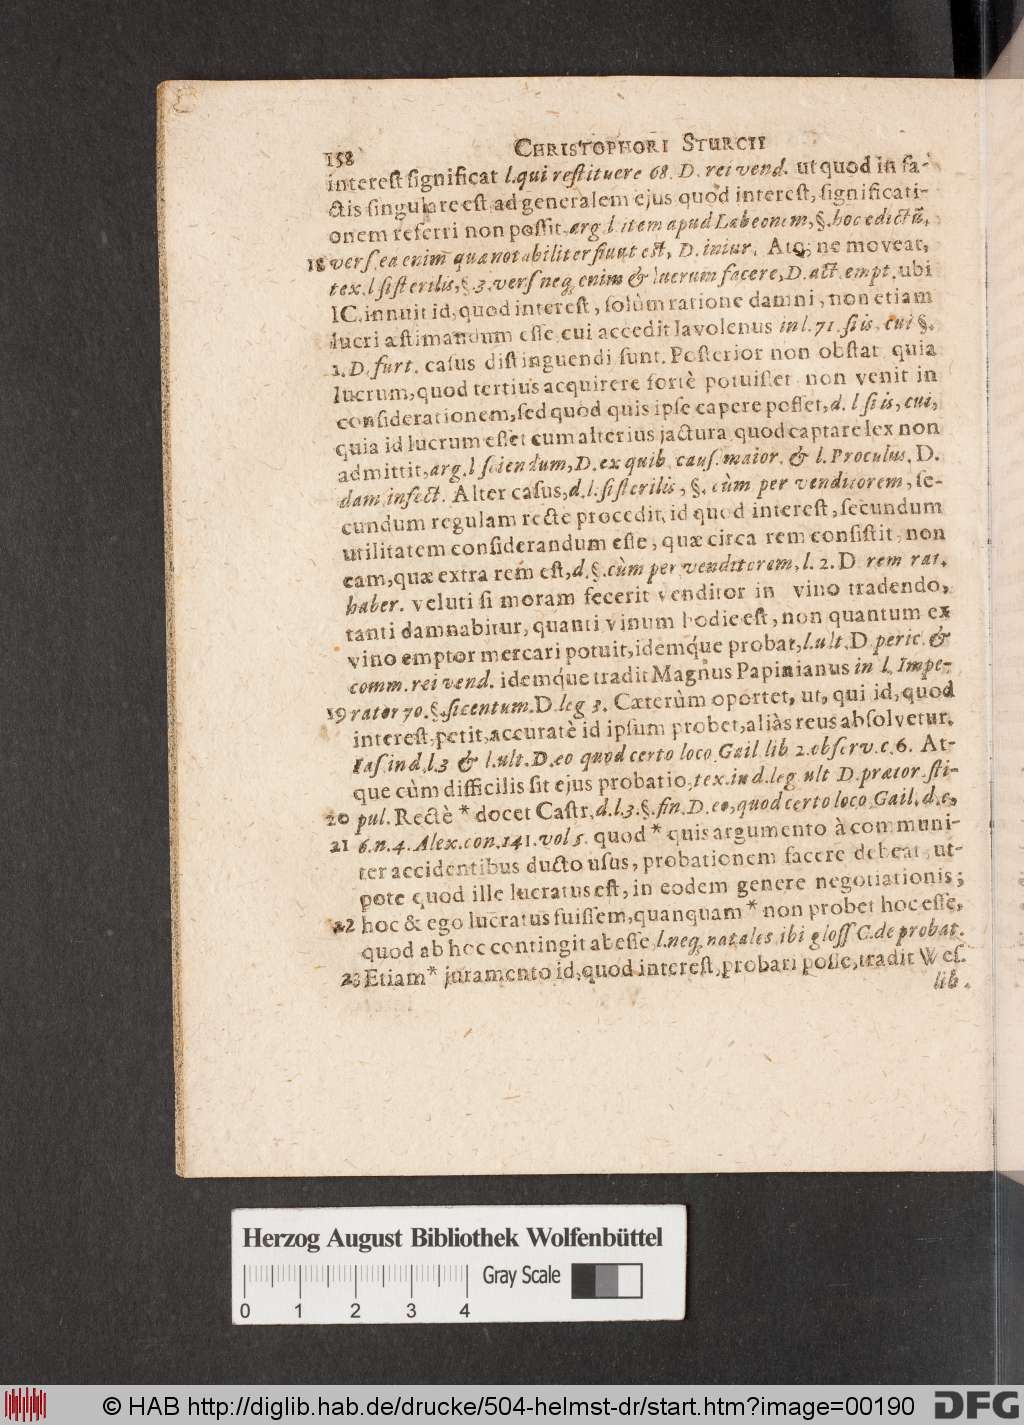 158 CHRISTOPHORI STURCII
interest significat l. qui restituere 68. D. rei vend. ut quod in fa-
ctis singulare est, ad generalem ejus quod interest, significati-
onem referri non possit, arg. l. item apud Labeonem, §. hoc edictũ,
18 vers. ea enim quæ notabiliter fiunt est, D. iniur. Atq; ne moveat,
tex. l. si sterilis, §. 3. vers. neq; enim & lucrum facere, D. act. empt. ubi
IC. innuit id, quod interest, solùm ratione damni, non etiam
lucri æstimandum esse, cui accedit Iavolenus in l. 71. si is, cui §.
1. D. furt. casus distinguendi sunt. Posterior non obstat quia
lucrum, quod tertius acquirere fortè potuisset non venit in
considerationem, sed quod quis ipse capere posset, d. l. si is, cui,
quia id lucrum esset cum alterius jactura quod captare lex non
admittit, arg. l. sciendum, D. ex quib. caus. maior. & l. Proculus, D.
dam. infect. Alter casus, d. l. si sterilis, §. cùm per venditorem, se-
cundum regulam recte procedit, id quod interest, secundum
utilitatem considerandum esse, quæ circa rem consistit, non
eam, quæ extra rem est, d. §. cùm per venditorem, l. 2. D rem rat.
haber. veluti si moram fecerit venditor in vino tradendo,
tanti damnabitur, quanti vinum hodie est, non quantum ex
vino emptor mercari potuit, idemq́ue probat, l. ult. D peric. &
comm. rei vend. idemq́ue tradit Magnus Papinianus in l. Impe-
19 rator 70. §. si centum. D. leg 3. Cæterùm oportet, ut, qui id, quod
interest, petit, accuratè id ipsum probet, aliàs reus absolvetur.
Ias. in d. l. 3 & l. ult. D. eo quod certo loco Gail lib 2. observ. c. 6. At-
que cùm difficilis sit ejus probatio, tex. in d. leg ult D. prætor. sti-
20 pul. Rectè * docet Castr. d. l. 3. §. fin. D. eo, quod certo loco Gail. d. c.
21 6. n. 4. Alex. con. 141. vol 5. quod * quis argumento à communi-
ter accidentibus ducto usus, probationem facere debeat, ut-
pote quod ille lucratus est, in eodem genere negotiationis;
22 hoc & ego lucratus fuissem, quanquam * non probet hoc esse,
quod ab hoc contingit abesse, l. neq; natales ibi gloss C. de probat.
23 Etiam * juramento id, quod interest, probari posse, tradit Wes.
lib.
Herzog August Bibliothek Wolfenbüttel
Gray Scale
0 1 2 3 4
© HAB http://diglib.hab.de/drucke/504-helmst-dr/start.htm?image=00190 DFG